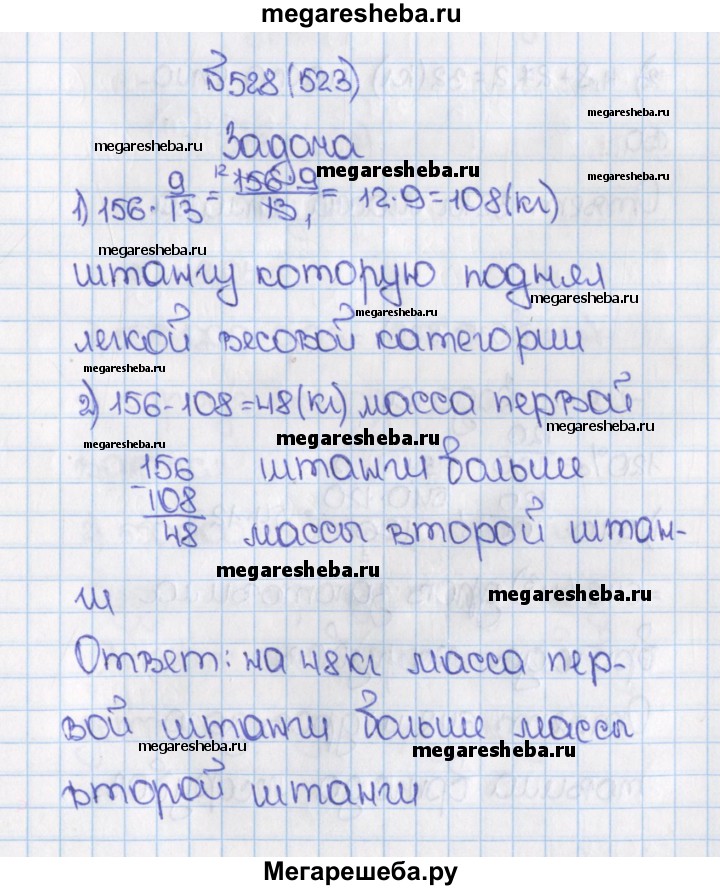 megaresheba.ru
№528(523)
megaresheba.ru
Задача
megaresheba.ru
megaresheba.ru
megaresheba.ru
1) 156·9/13=12 156·9/13 1=12·9=108(кг)
megaresheba.ru
штангу которую поднял
megaresheba.ru
megaresheba.ru
легкой весовой категории
megaresheba.ru
2) 156-108=48(кг) масса первой
megaresheba.ru
megaresheba.ru
megaresheba.ru
156 штанги больше
-108
megaresheba.ru
48 массы второй штан-
megaresheba.ru
megaresheba.ru
ги
Ответ: на 48кг масса пер-
вой штанги больше массы
megaresheba.ru
megaresheba.ru
второй штанги
Мегарешеба.ру